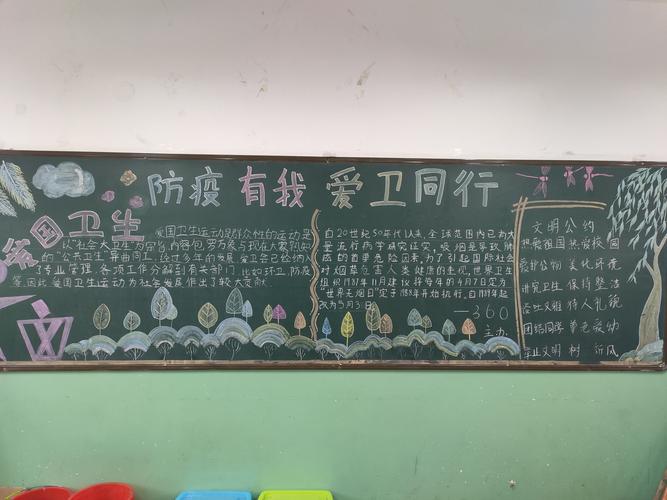 防疫有我 爱卫同行
爱国卫生
爱国卫生运动是群众性的运动是
以"社会大卫生"为宗旨,内容包罗万象与现在大家熟知
的"公共卫生"异曲同工,经过多年的发展,爱卫会已经纳入
了专业管理,各项工作分解到有关部门,比如环卫,防疫
等,因此爱国卫生运动为社会发展作出了较大贡献.
自20世纪50年代以来,全球范围内已有大
量流行病学研究证实,吸烟是导致肺
癌的首要危险因素.为了引起国际社会
对烟草危害人类健康的重视,世界卫生
组织1987年11月建议将每年的4月7日定为
"世界无烟日"定于1988年开始执行,自1989年起
改为5月31日.
—360
主办:
文明公约
热爱祖国 热爱校园
爱护公物 美化环境
讲究卫生 保持整洁
谈吐文雅 待人礼貌
团结同学 尊老爱幼
举止文明 树 新风